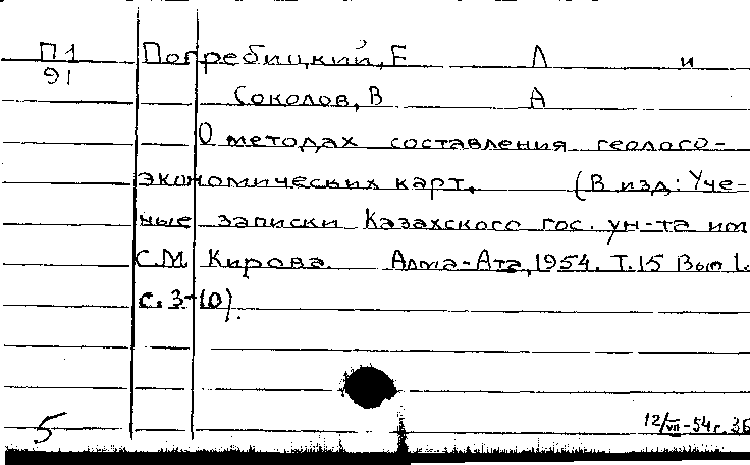 П1 Погребицкий, Е Л и
91
Соколов, В А
О методах составления геолого-
экономических карт. (В изд: Уче-
ные записки Казахского гос. ун-та им
С.М Кирова. Алма-Ата, 1954. Т.15 Вып 1.
с. 3-10).
5 12/VII-54г. 36